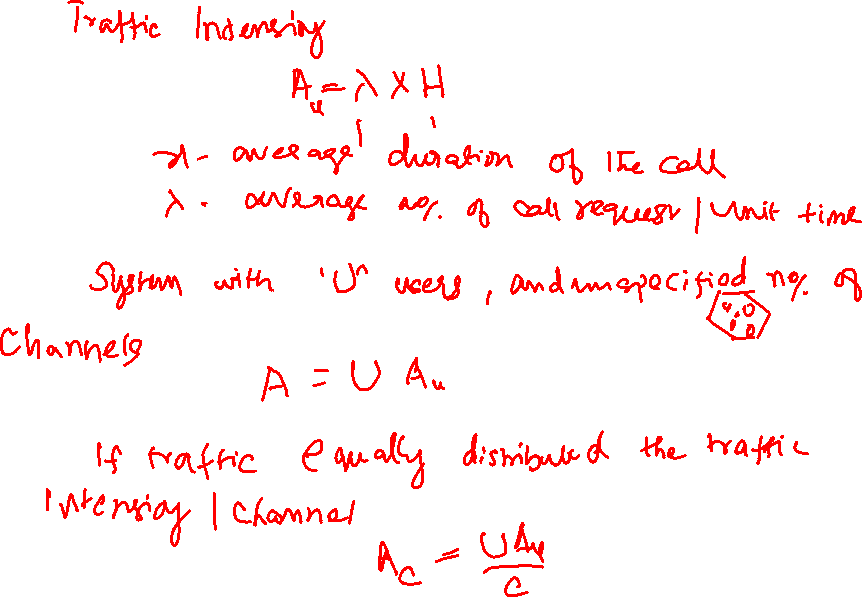 Traffic Intensity
Au = λ X H
H - average duration of the call
λ - average no/. of call request / unit time
System with 'U' users, and unspecified no/. of
Channels
A = U Au
If traffic equally distributed the traffic
intensity / channel
Ac = UAu / C